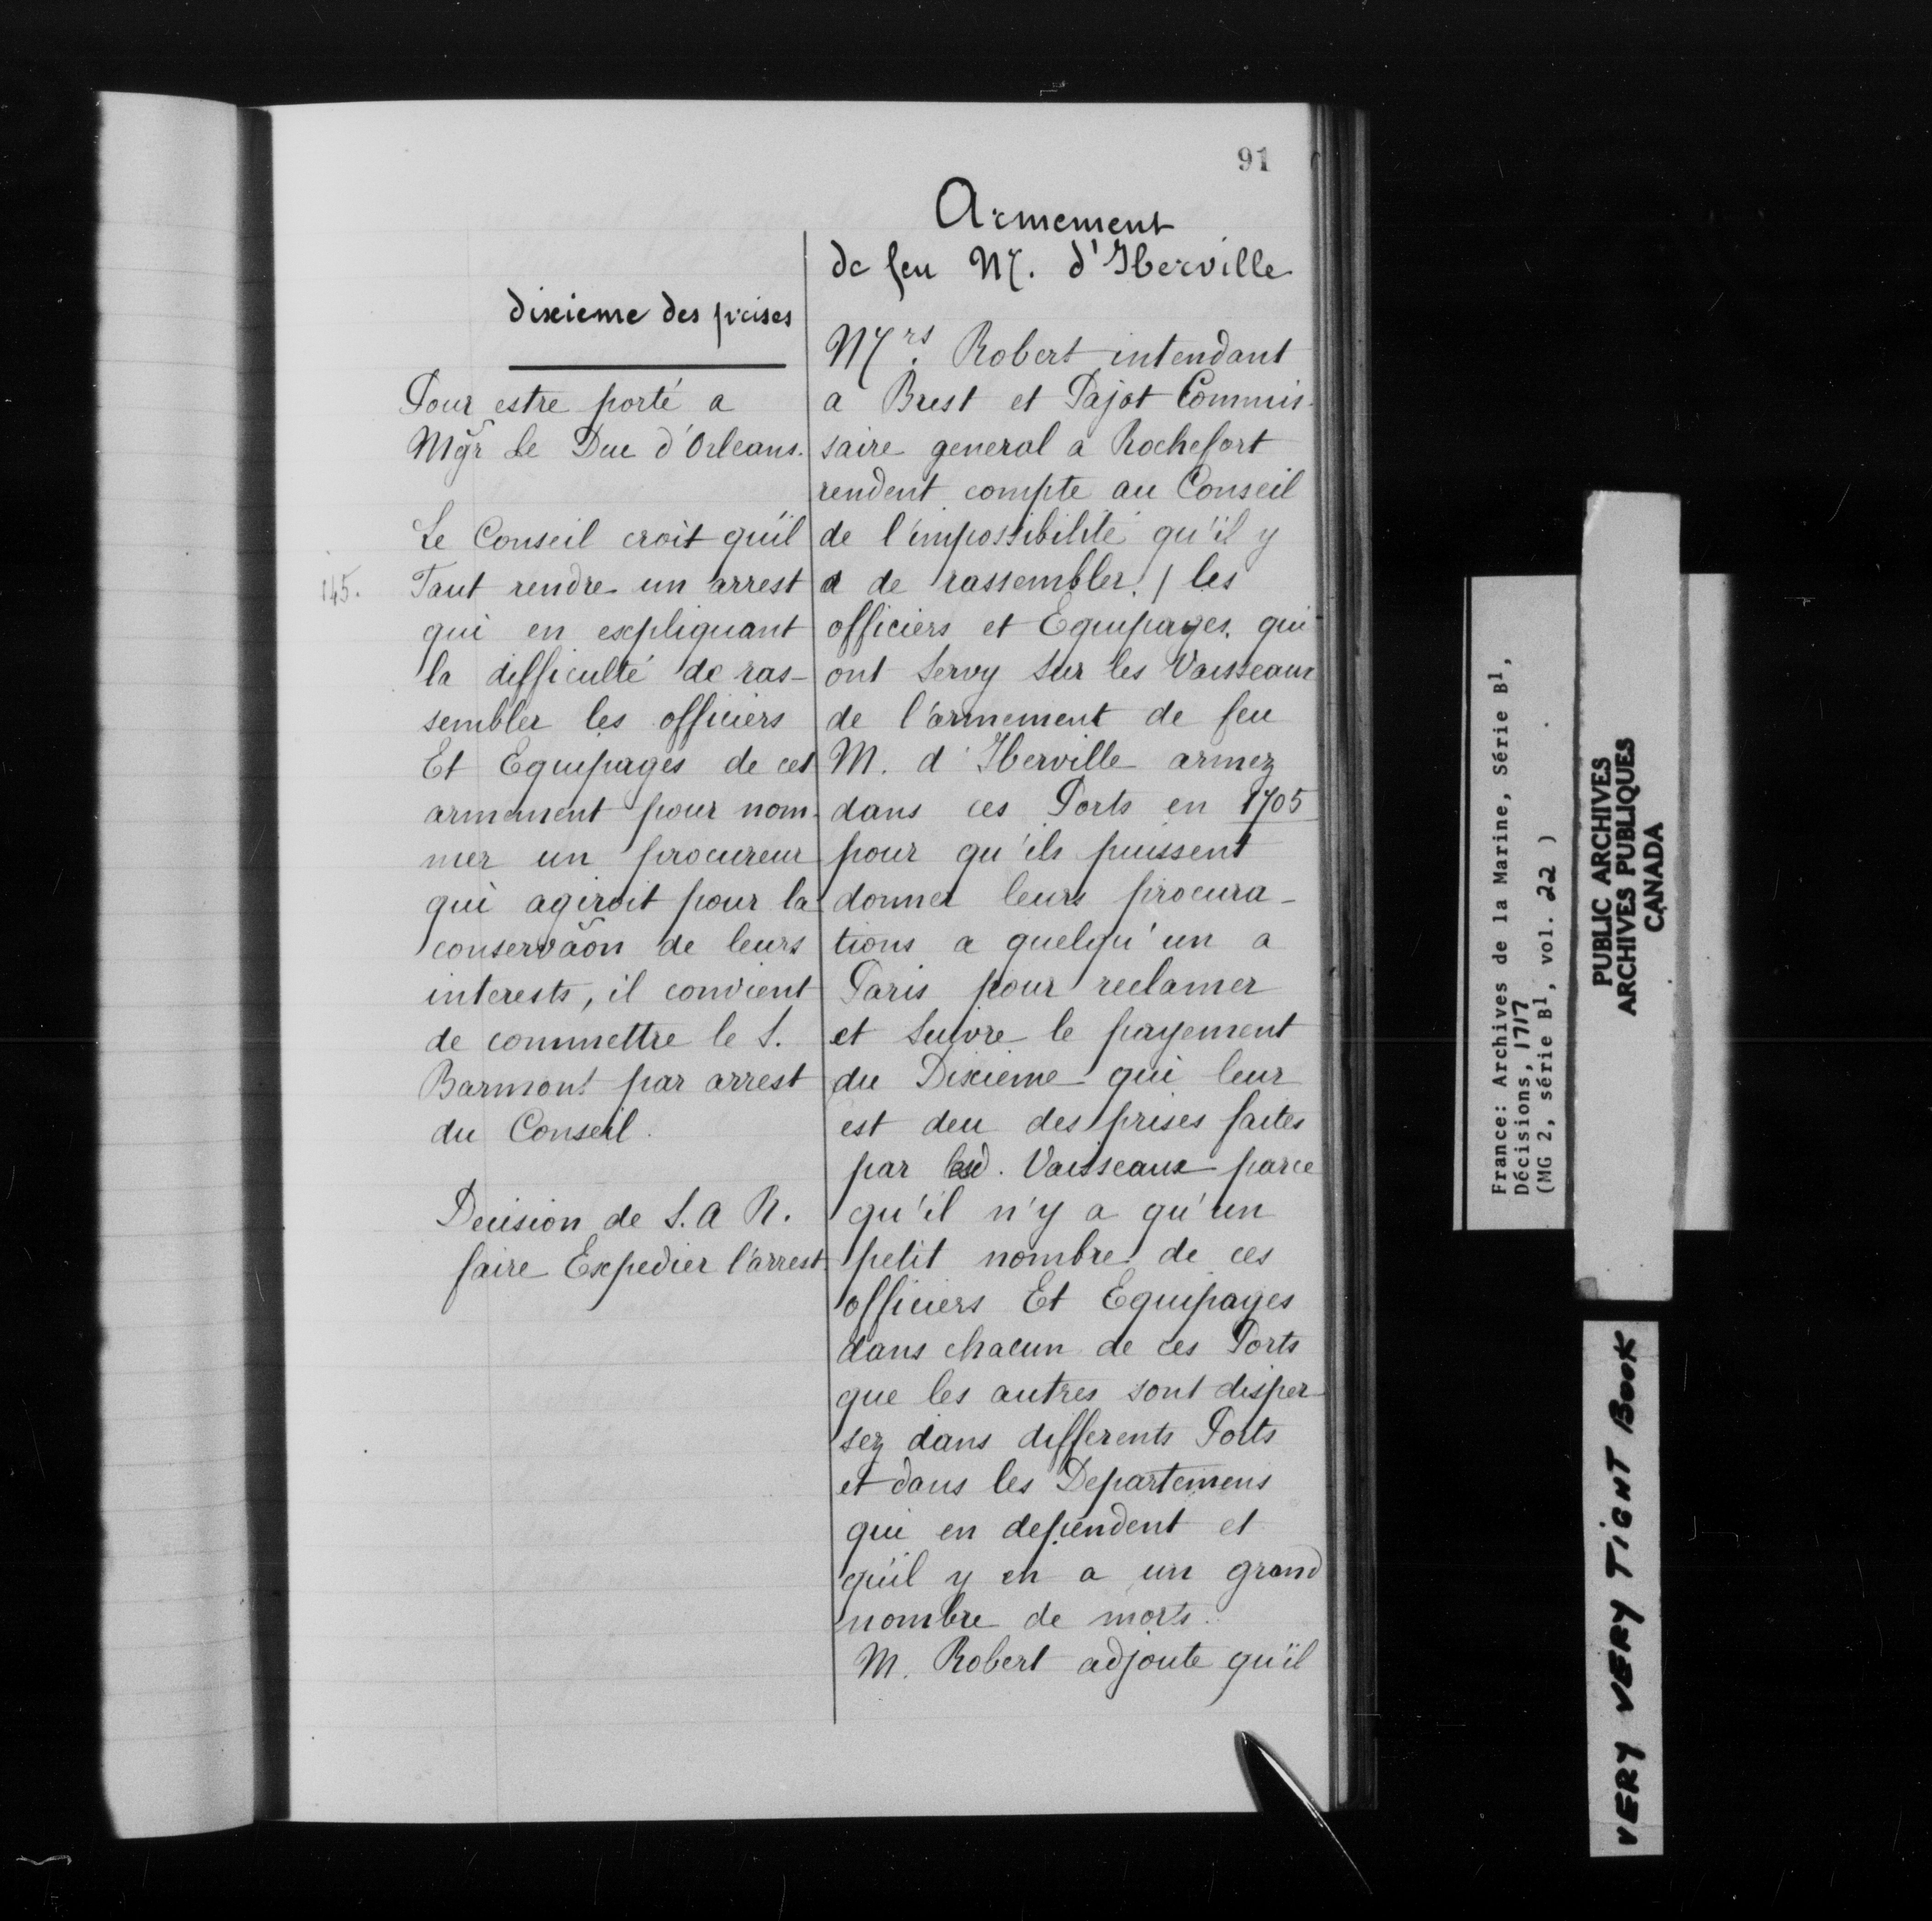 91
Armement
de feu M. d'Iberville
dixieme des prises
Pour estre porté a
Mgr Le Duc d'Orleans.
Le Conseil croit qu'il
145.
faut rendre un arrest
qui en expliquant
la difficulté de ras-
sembler les officiers
Et Equipages de cet
armement pour nom-
mer un procureur
qui agiroit pour la
conservãon de leurs
interests, il convient
de commettre le S.
Barmont par arrest
du Conseil.
Decision de S. A R.
faire Expedier l'arrest
Mrs. Robert intendant
a Brest et Pajot Commis-
saire general a Rochefort
rendent compte au Conseil
de l'impossibilité qu'il y
a de rassembler / les
officiers et Equipages qui
ont servy sur les Vaisseaux
de l'armement de feu
M. d'Iberville armez
dans ces Ports en 1705
pour qu'ils puissent
donner leurs procura-
tions a quelqu'un a
Paris pour reclamer
et suivre le payement
du Dixieme qui leur
est deu des prises faites
par lesd. Vaisseaux parce
qu'il n'y a qu'un
petit nombre de ces
officiers Et Equipages
dans chacun de ces Ports
que les autres sont disper-
sez dans differents Ports
et dans les Departemens
qui en dependent et
qu'il y en a un grand
nombre de morts.
M. Robert adjoute qu'il
France: Archives de la Marine, Série B1,
Décisions, 1717
(MG 2, série B1, vol. 22 )
PUBLIC ARCHIVES
ARCHIVES PUBLIQUES
CANADA
VERY VERY TIGHT BOOK